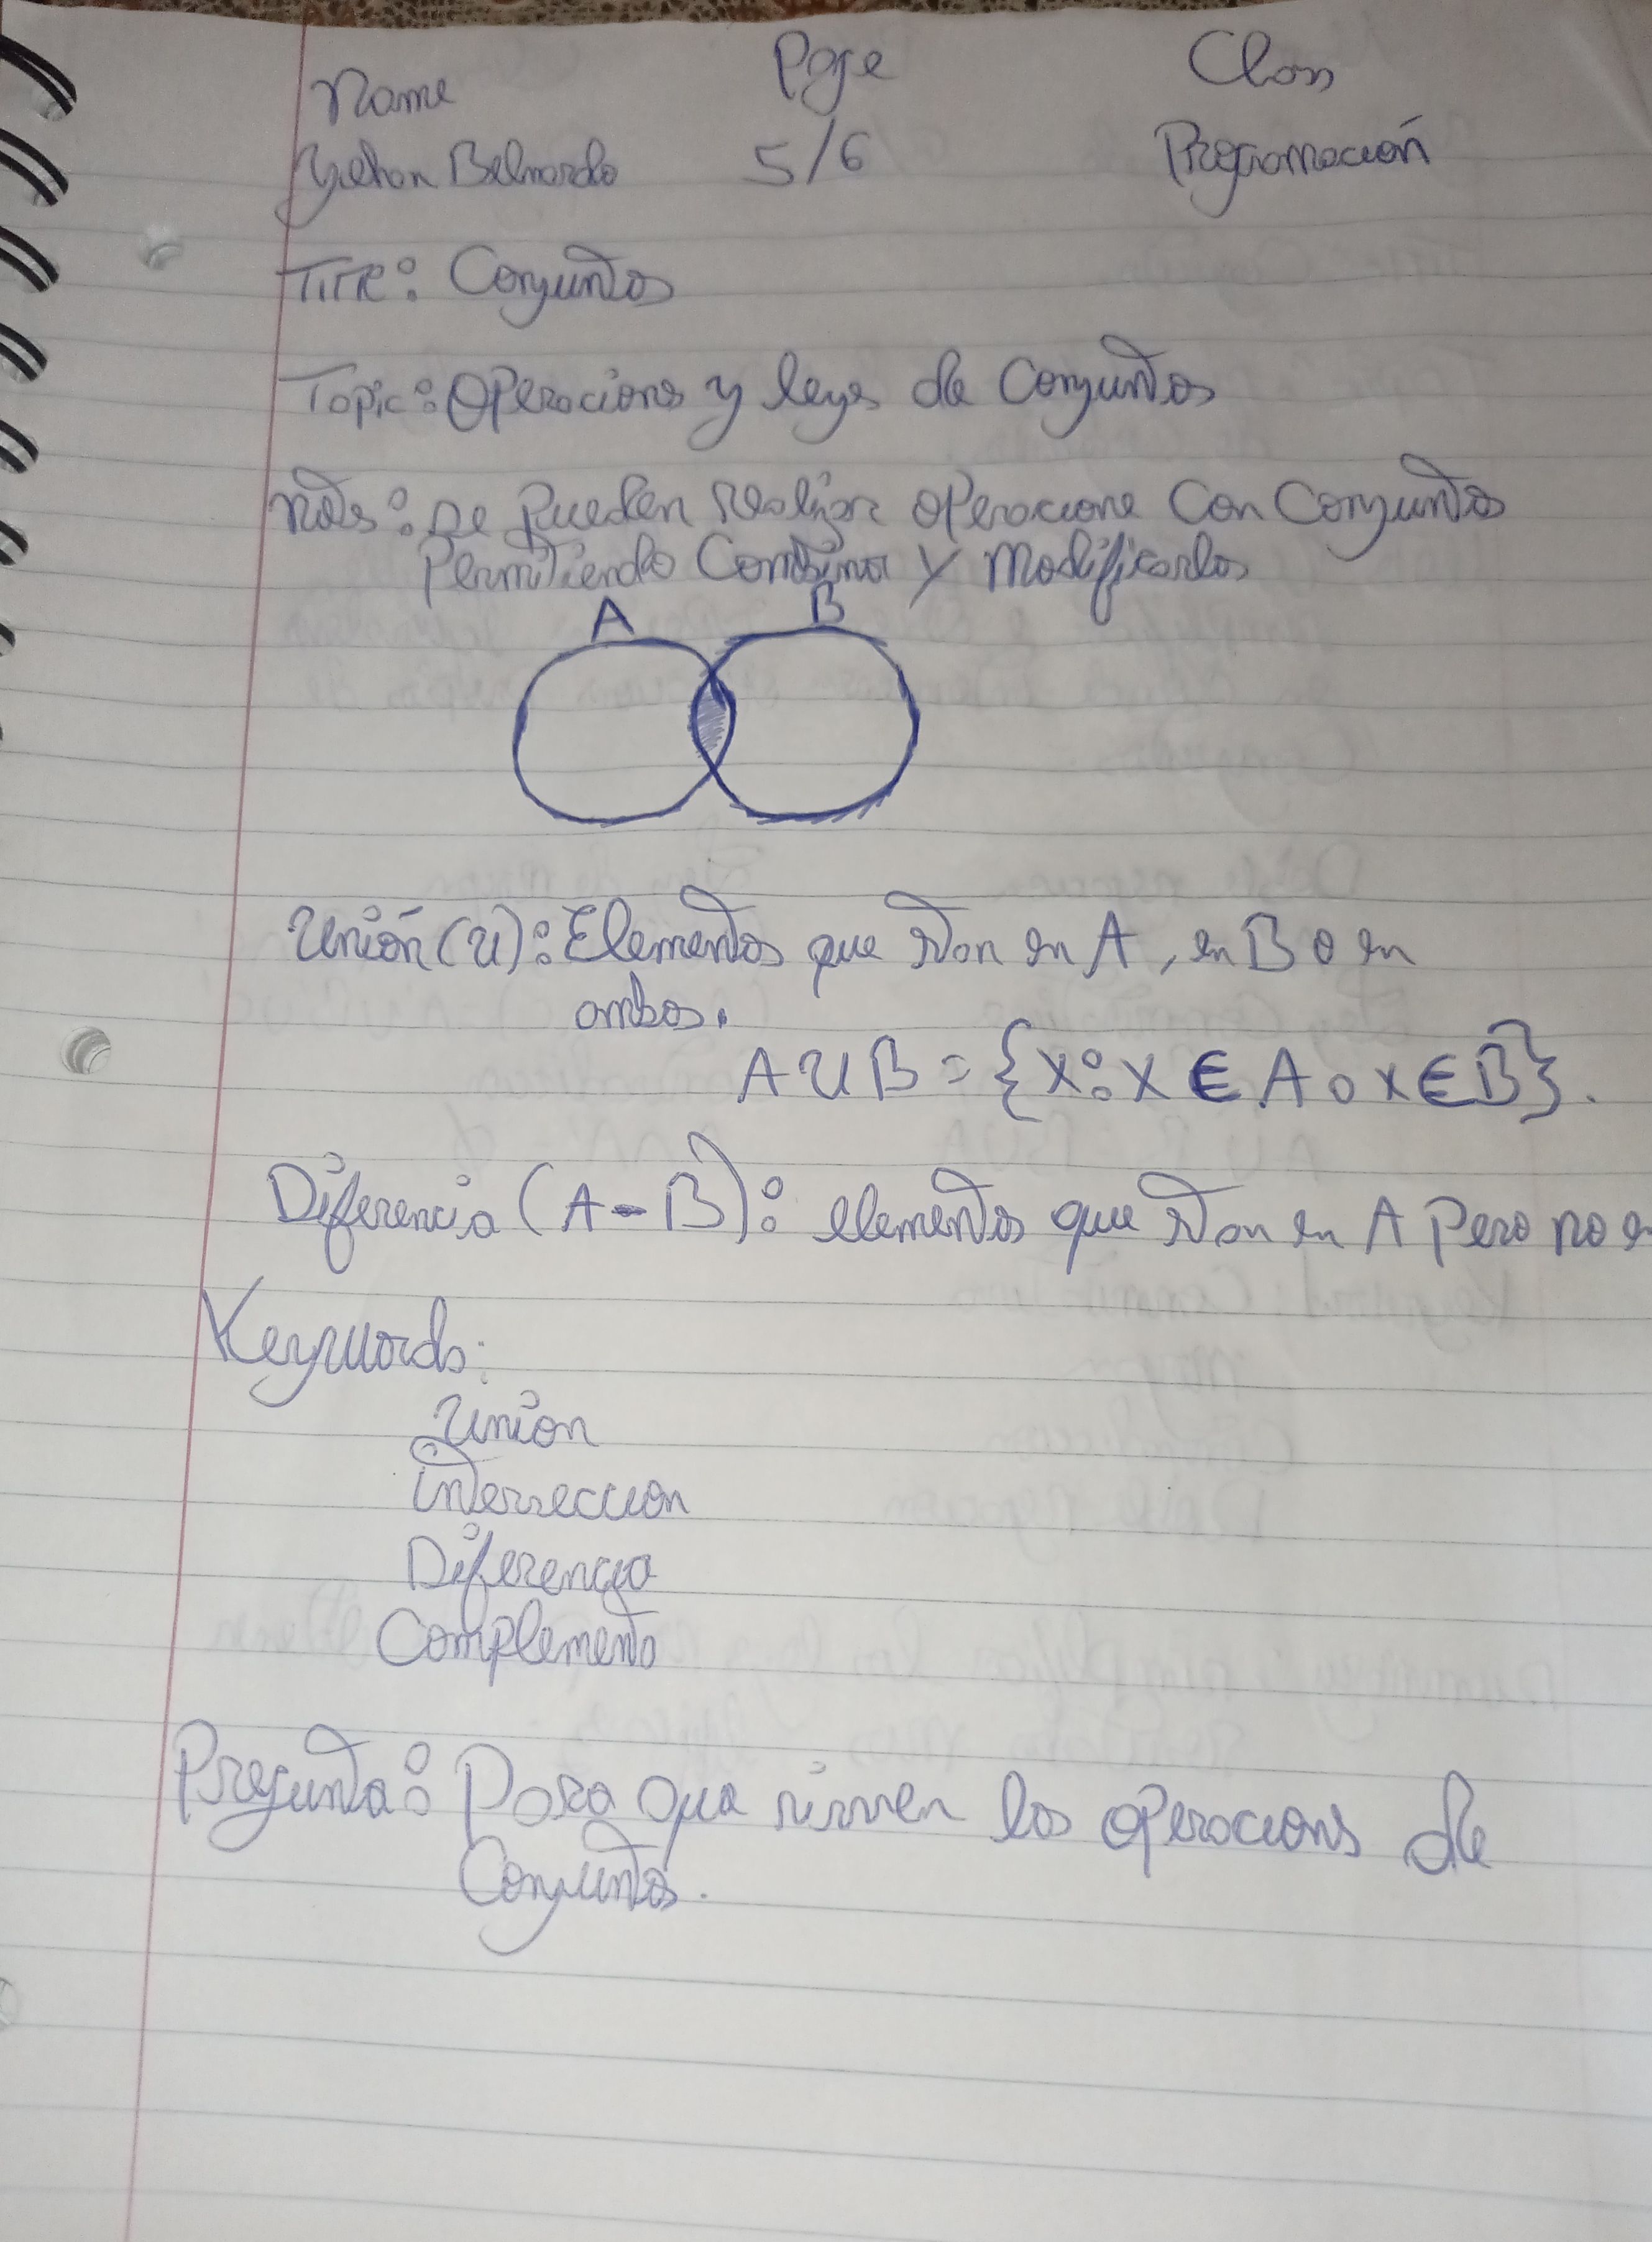 Name Page Class
Yeison Belnardo 5/6 Programación
Title: Conjuntos
Topic: Operaciones y leyes de Conjuntos
Notes: se pueden realizar operacione con Conjuntos
Permitiendo Combinar y Modificarlos
A B
Unión (U): Elementos que stan en A, en B o en
ambos.
A U B = {x: x ∈ A o x ∈ B}.
Diferencia (A-B): elementos que stan en A pero no en
Keywords:
Union
interseccion
Diferencia
Complemento
Pregunta: Para que sirven las operacions de
Conjuntos.